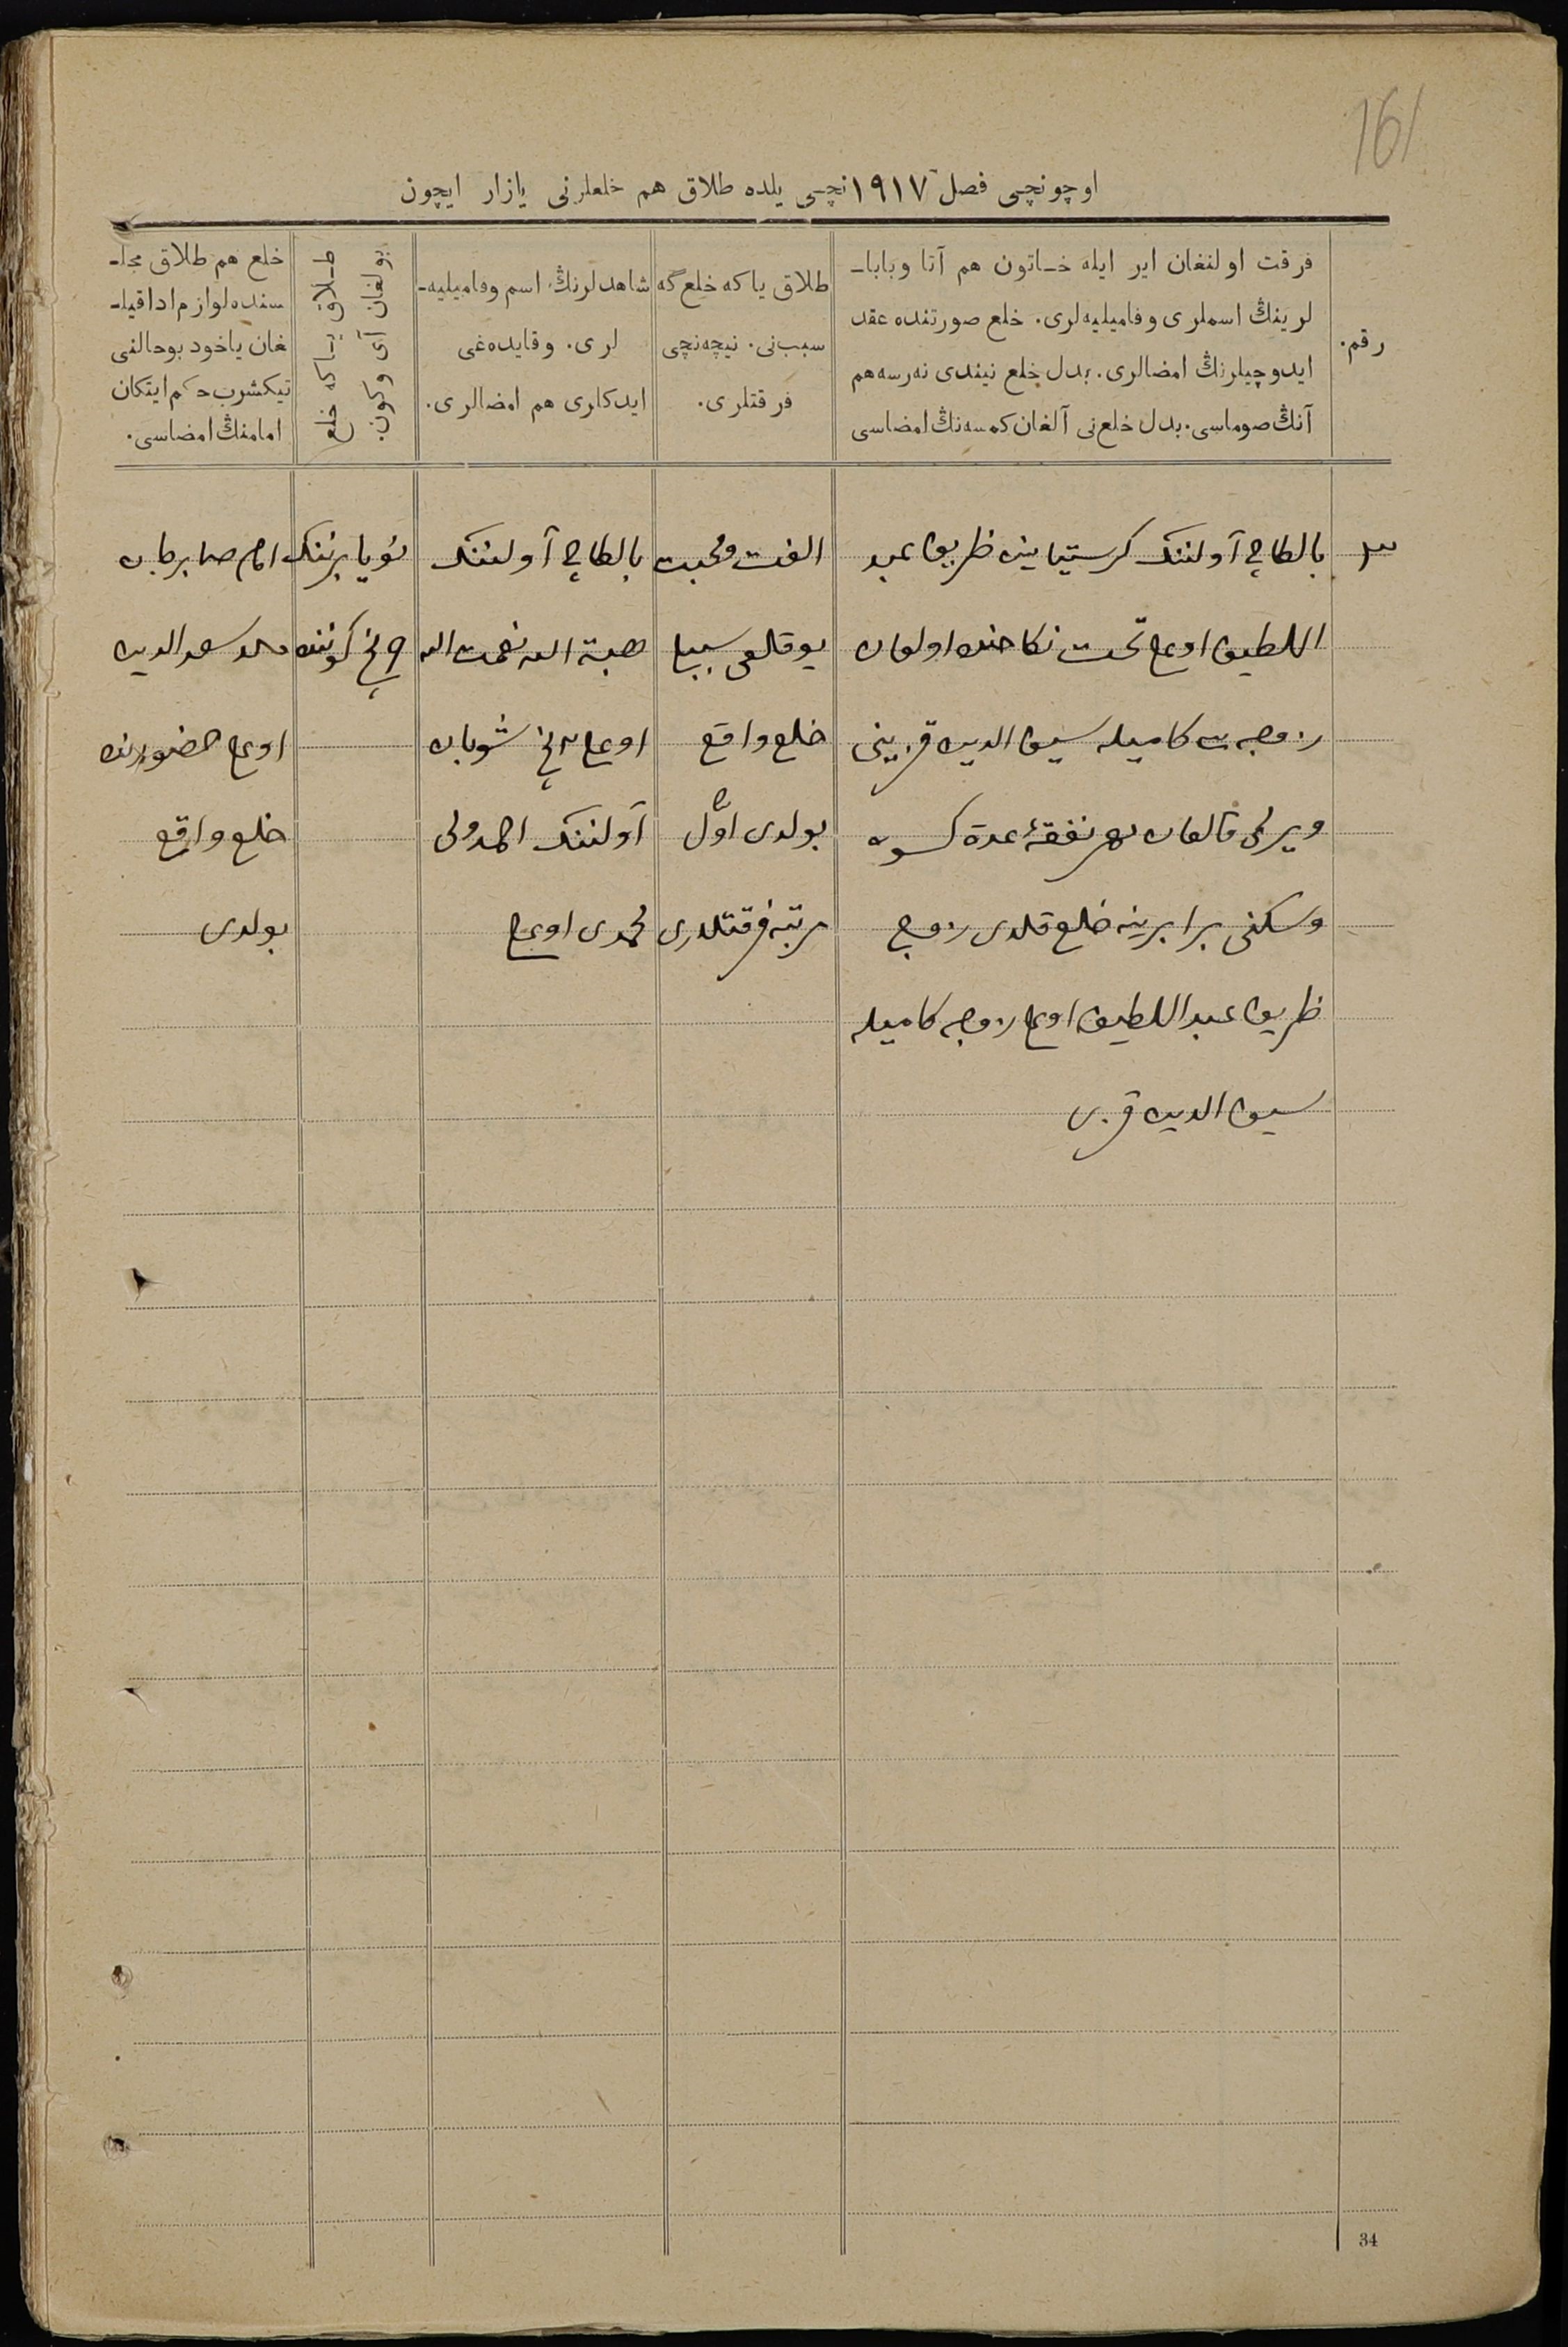 161
اوچونچی فصل ۱۹۱۷ نچی یلده طلاق هم خلعلرنی یازار ایچون
رقم.
فرقت اولنغان ایر ایله خاتون هم آتا وبابا-
لرینڭ اسملری و فامیلیه‌لری. خلع صورتنده عقد
ایدوچیلرنڭ امضالری. بدل خلع نیندی نه‌رسه هم
آنڭ صوماسی. بدل خلع‌نی آلغان کمسه‌نڭ امضاسی
طلاق یاکه خلع گه
سبب‌نی. نیچه‌نچی
فرقتلری.
شاهدلرنڭ اسم وفامیلیه-
لری. وقایده‌غی
ایدکلری هم امضالری.
طلاق یاکه خلع
بولغان آی وکون.
خلع هم طلاق مجلـ
سنده لوازم ادا قیلـ
غان یاخود بوحالنی
تیکشرب حکم ایتکان
امامنڭ امضاسی.
۳
بالطاچ آولننک کرستیانینی ظریف عبد
اللطیف اوغلی تحت نکاحنده اولغان
زوجه سی کامیله سیف الدین قزینی
ویرلمی قالغان مهر نفقهٔ عدة کسوه
وسکنی برابرینه خلع قلدی زوج
ظریف عبداللطیف اوغلی زوجه کامیله
سیف الدین قزی
الفت ومحبت
یوقلغی سببلی
خلع واقع
بولدی اوّل
مرتبه فرقتلری
بالطاچ آولننک
هبة الله نعمت الله
اوغلی ۲نچی شوبان
آولننک احمدولی
محمدی اوغلی
نویابرننک
۹ نچی کوننده
امام صابرجان
ملا سعدالدین
اوغلی حضورنده
خلع واقع
بولدی
34